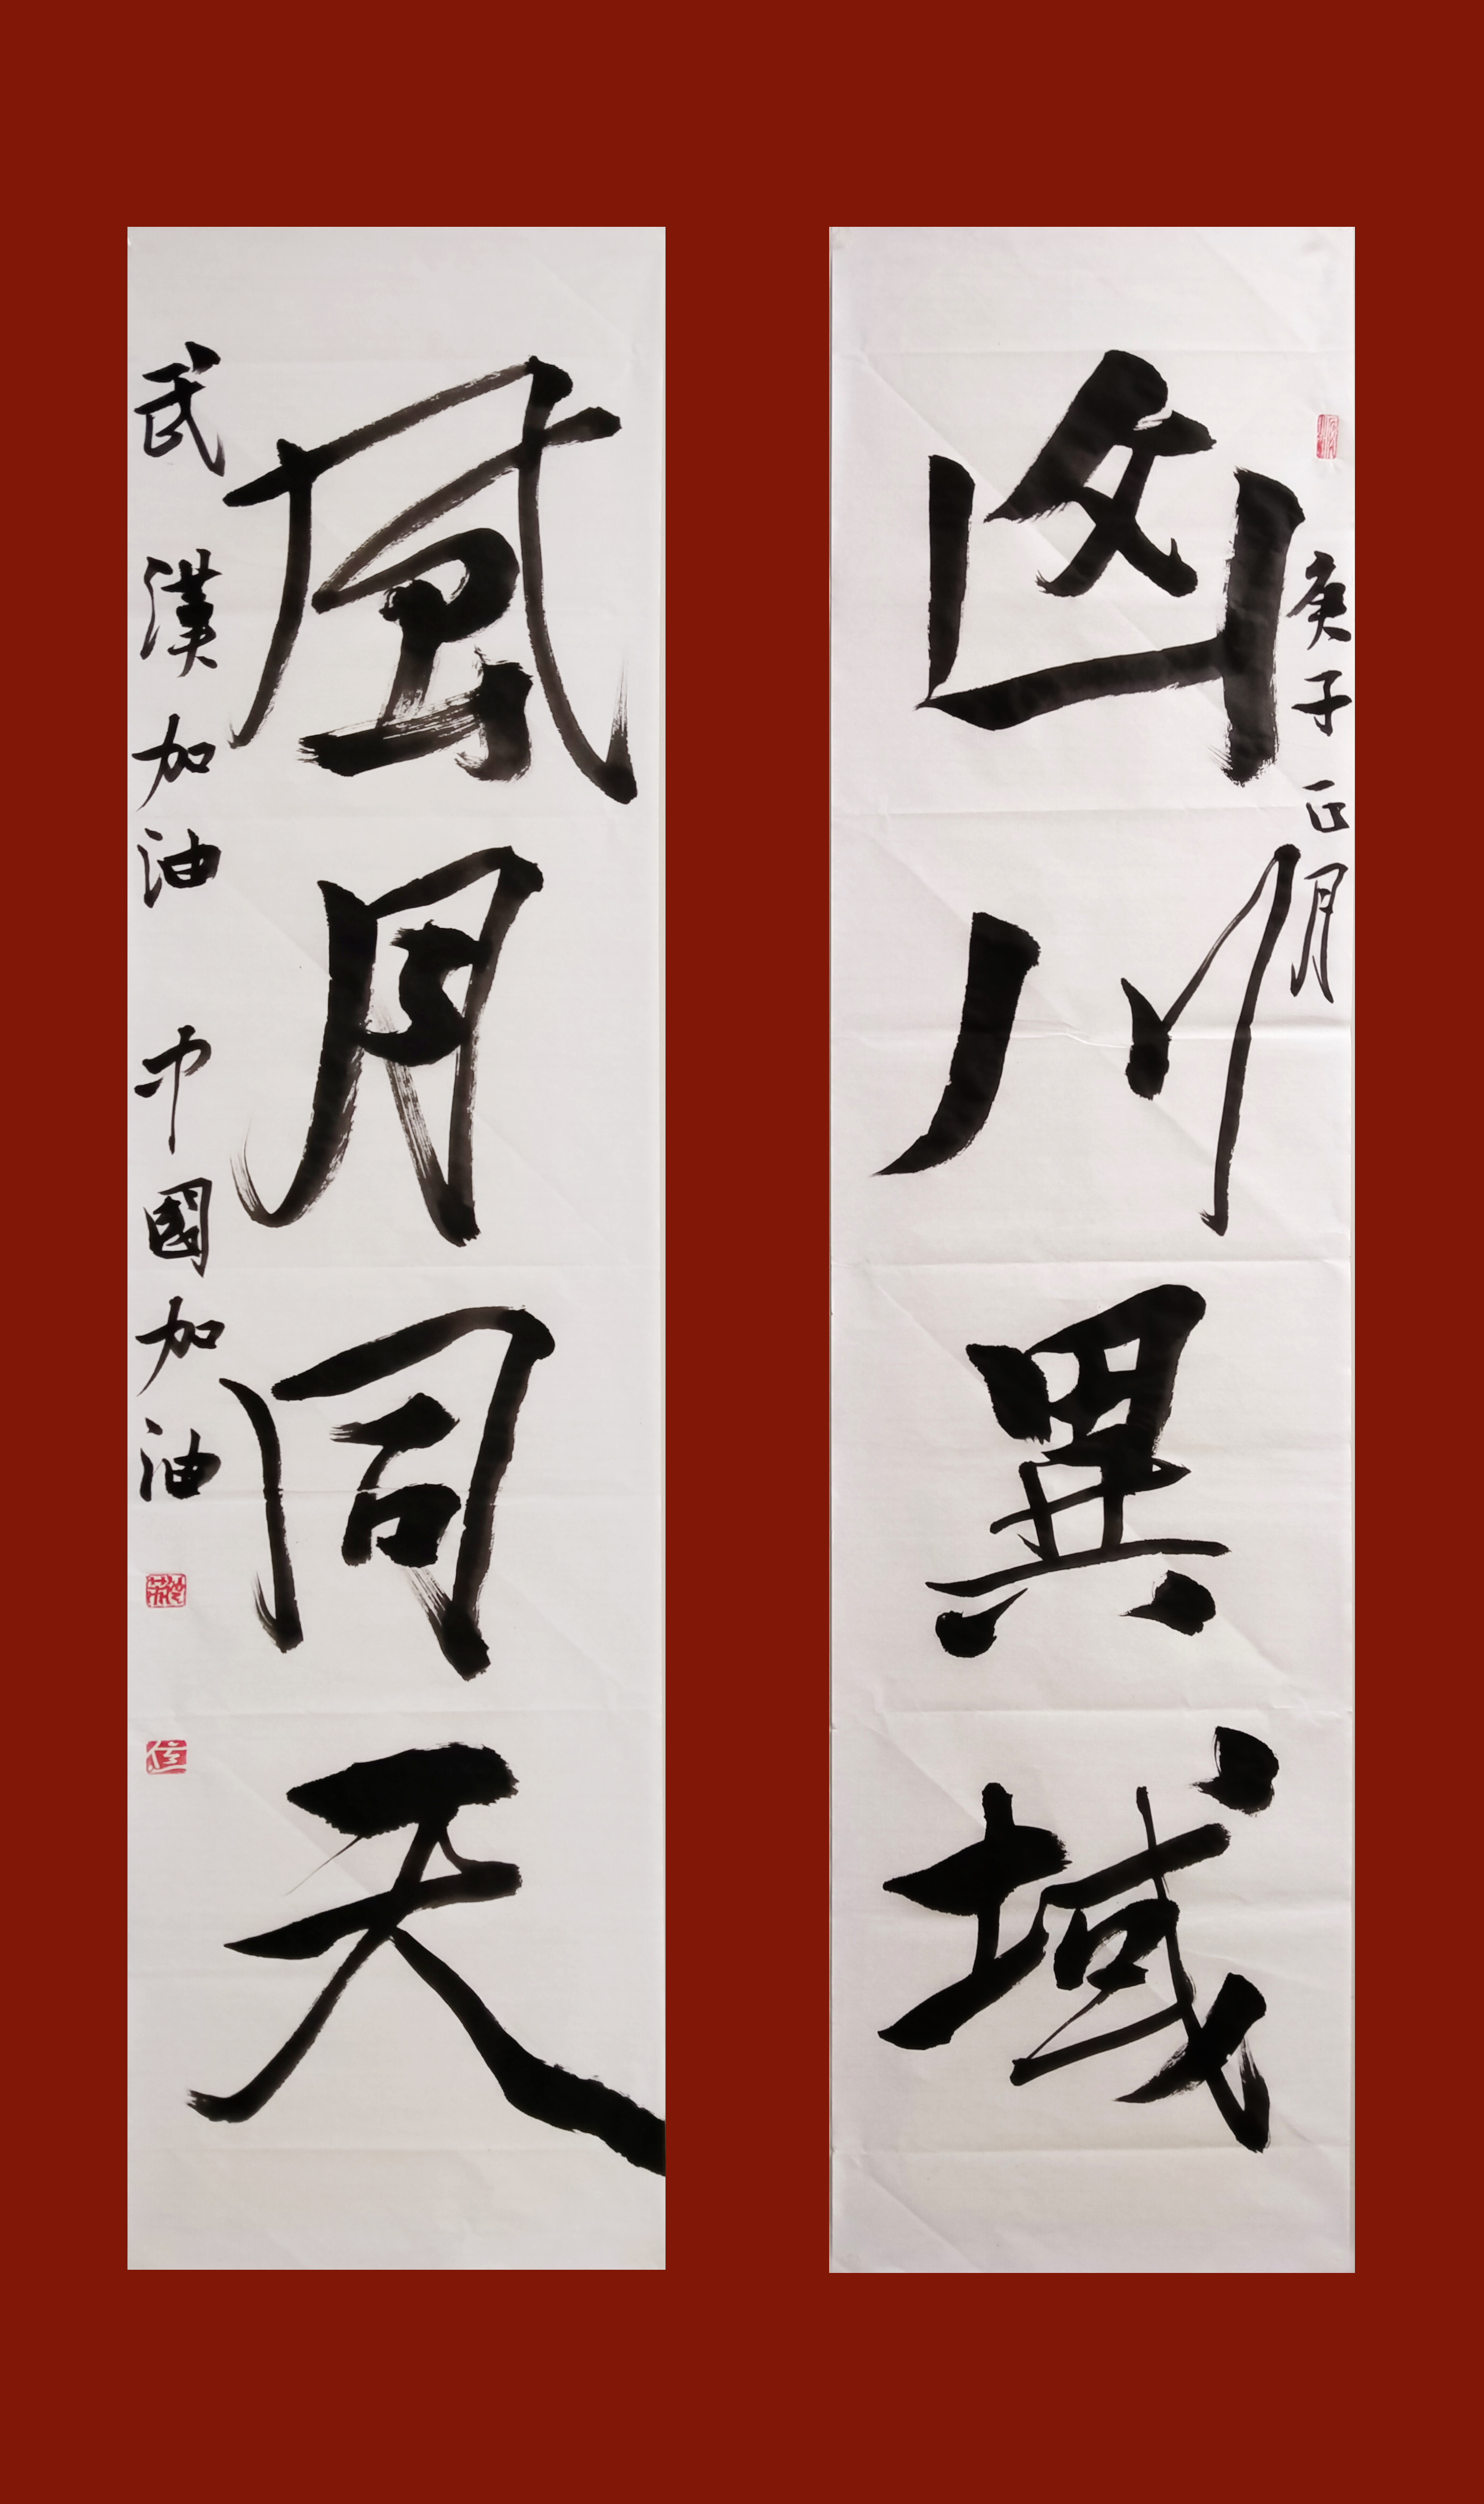 庚子正月
山川異域
風月同天
武漢加油 中國加油